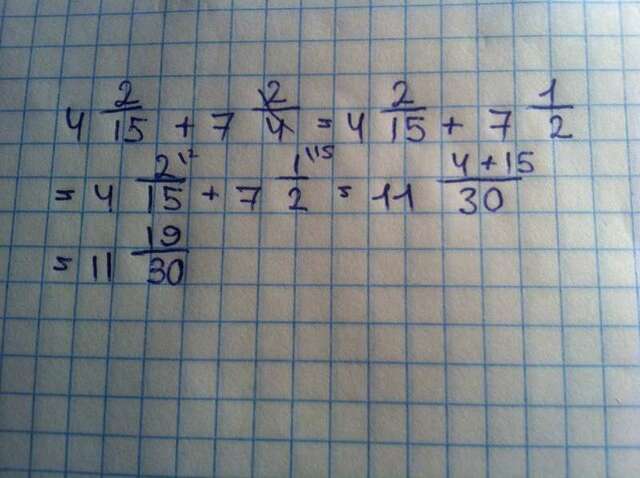 4 2/15 + 7 2/4 = 4 2/15 + 7 1/2
= 4 2\2/15 + 7 1\15/2 = 11 4+15/30
= 11 19/30